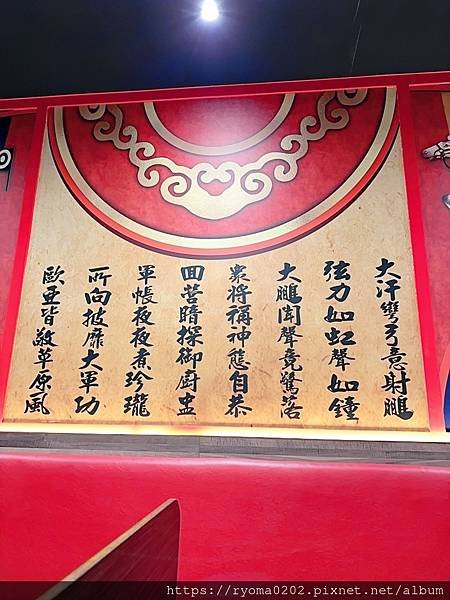 大汗彎弓意射鵬
弦力如虹聲如鐘
大鵬聞聲竟驚落
眾將稱神態自恭
回營暗探御廚盅
軍帳夜夜煮珍瓏
所向披靡大軍功
歐亞皆敬草原風
https://ryoma0202.pixnet.net/album